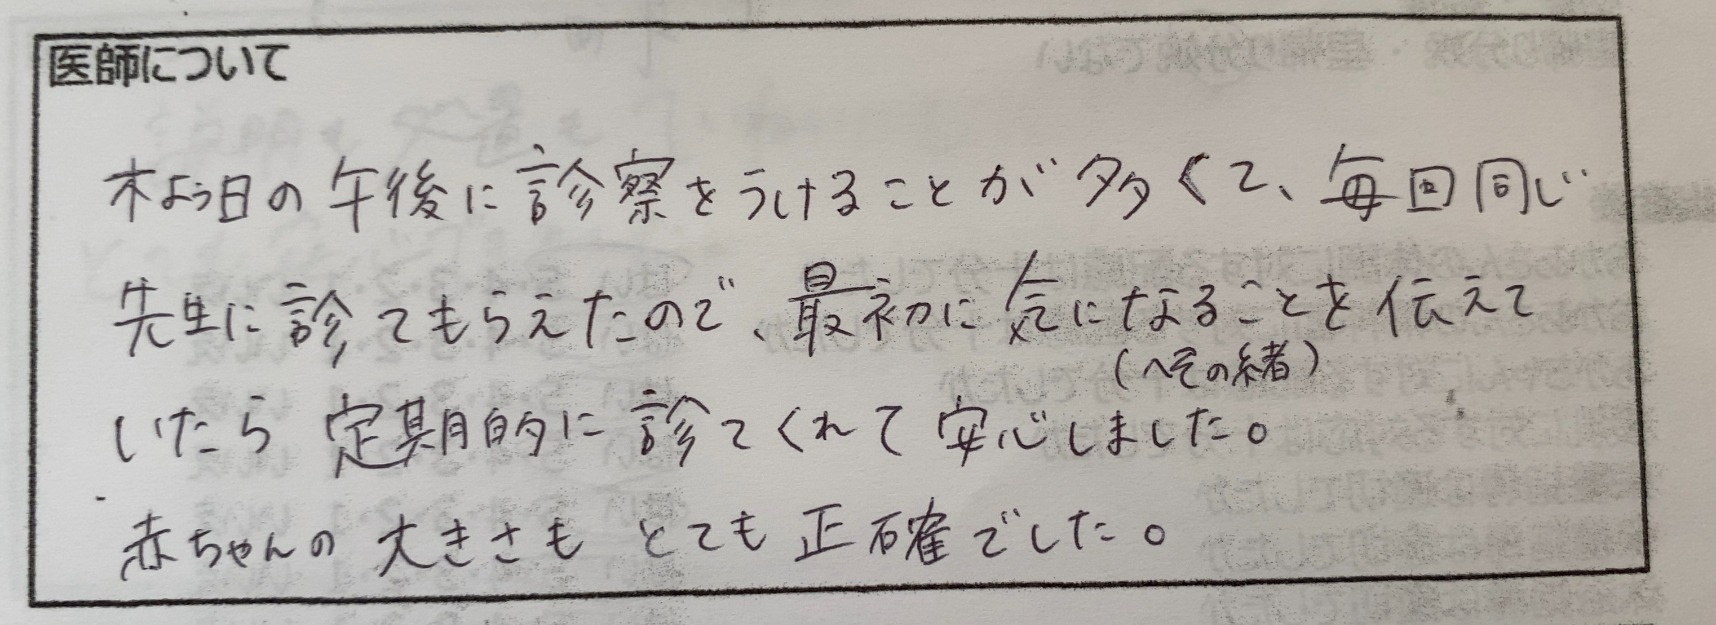 医師について
木よう日の午後に診察をうけることが多くて、毎回同じ
先生に診てもらえたので、最初に気になることを伝えて
(へその緒)
いたら 定期的に診てくれて安心しました。
赤ちゃんの大きさも とても正確でした。